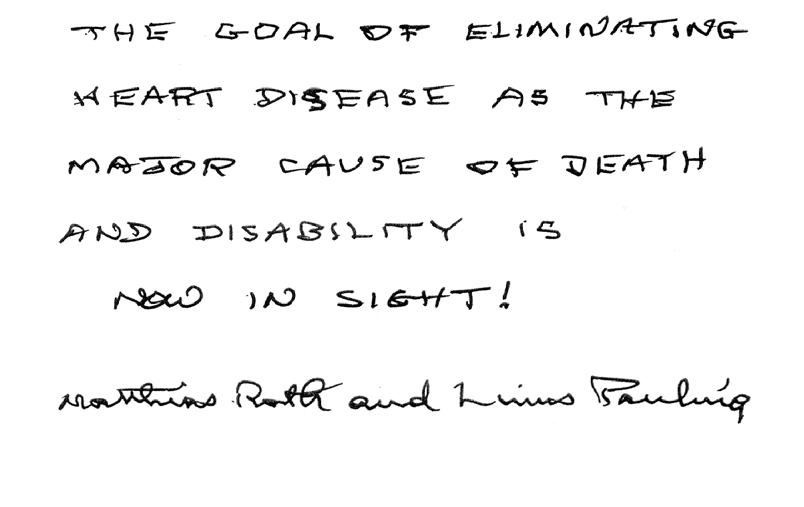 THE GOAL OF ELIMINATING
HEART DISEASE AS THE
MAJOR CAUSE OF DEATH
AND DISABILITY IS
NOW IN SIGHT!
Matthias Rath and Linus Pauling